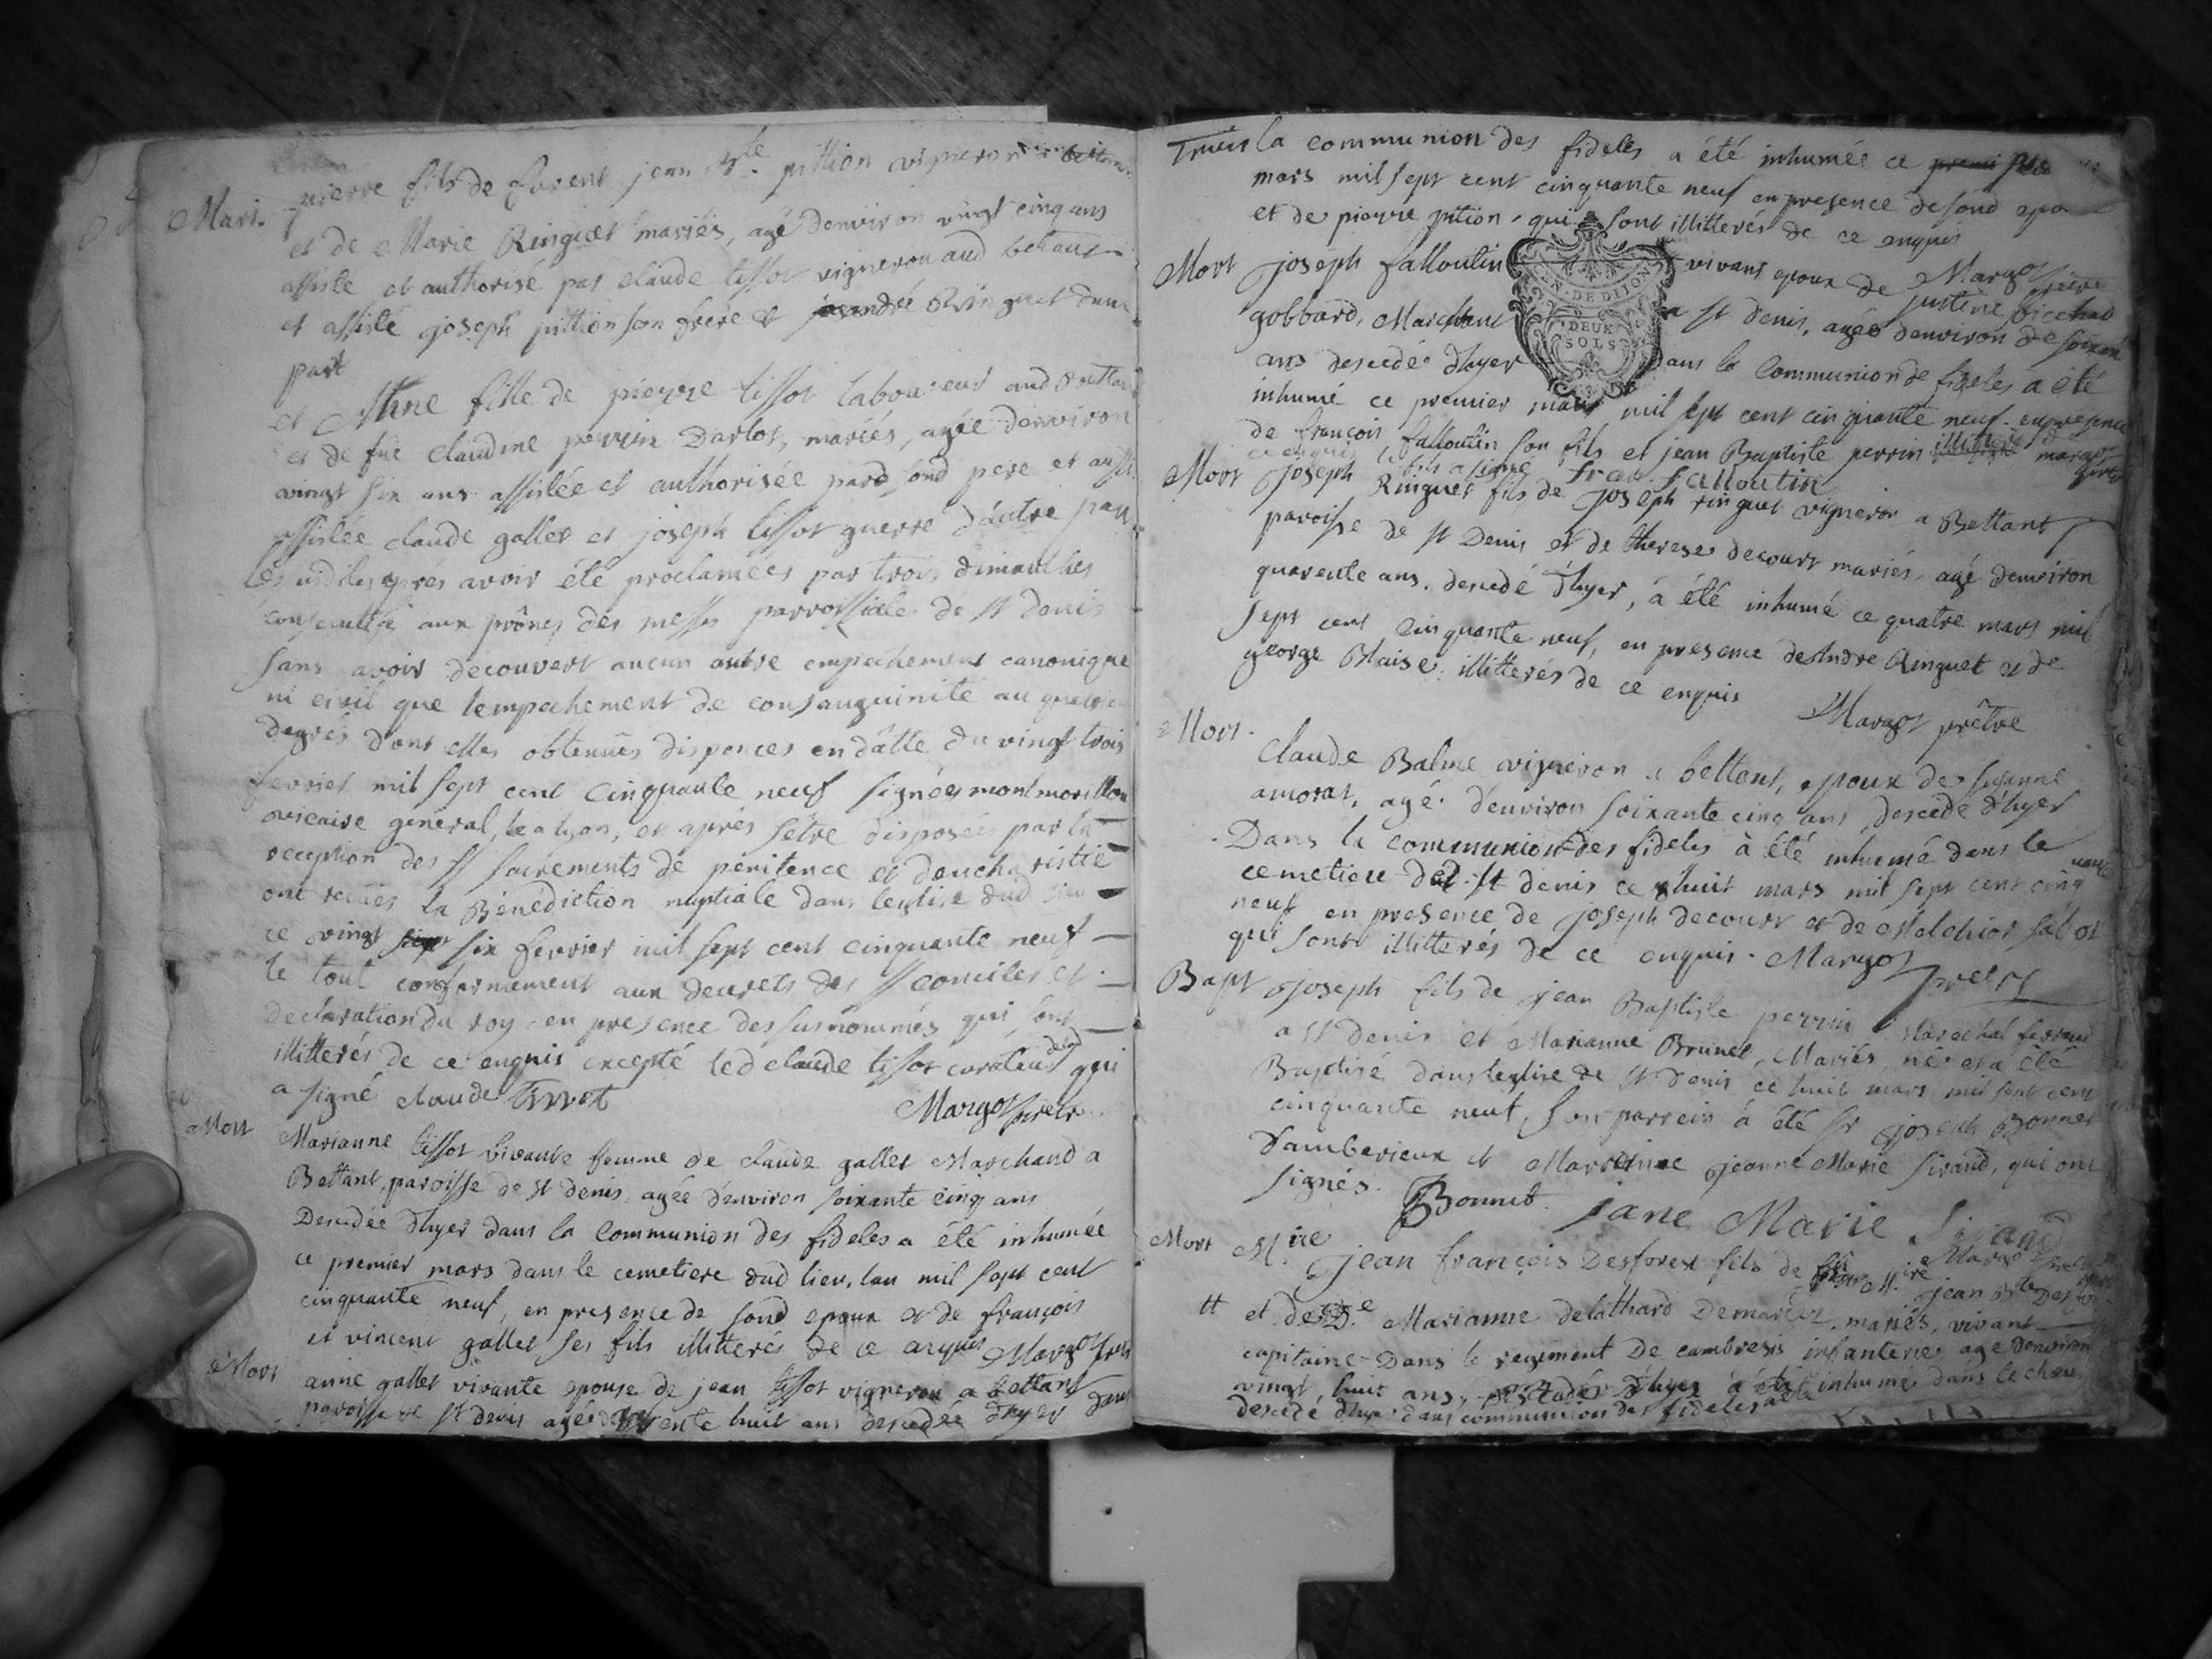 Mari. pierre fils de Laurent jean Bte. pittion vigneron a bettant
et de Marie Ringuet mariés, agé denviron vingt cinq ans
assisté et authorisé par Claude tissot vigneron aud bettant
et assisté joseph pittion son frère et andré Ringuet dune
part
et fille de pierre tissot laboureur aud bettant
et de füe claudine perrin Darlot, mariés, agée denviron
vingt six ans assistée et authorisée par sond pere et aussi
assistée claude gallet et joseph tissot guerre dautre part
Lesusdites après avoir été proclamées par trois dimanches
consecutifs aux prônes des messes parroissiales de st denis
sans avoir decouvert aucun autre empechement canonique
ni civil que lempechement de consanguinité au
degrés dont elles obtenües dispences en dâtte du vingt trois
fevrier mil sept cent cinquante neuf signées montmorillon
vicaire general, a lyon, et aprés sêtre disposées par la
reception des SS sacrements de penitence et deucharistie
ont reçües la Bénédiction nuptiale dans leglise dud lieu
ce vingt six fevrier mil sept cent cinquante neuf
le tout conformement aux decrets des SS conciles et
declaration du roy, en presence des susnommés qui sont
illitterés de ce enquis excepté led claude tissot curateur qui
a signé claude Tissot Margot prêtre
Mort Marianne tissot vivante femme de claude gallet Marchand a
Bettant, paroisse de st denis, agée denviron soixante cinq ans
Decedée d'hyer dans la Communion des fideles a été inhumée
ce premier mars dans le cemetiere dud lieu, lan mil sept cent
cinquante neuf, en presence de sond epoux et de françois
et vincent gallet ses fils illitterés de ce enquis Margot prêtre
Mort anne gallet vivante epouse de jean tissot vigneron a bettant
paroisse de st denis agée trente huit ans decedée d'hyer dans
la communion des fideles a été inhumée ce premi
mars mil sept cent cinquante neuf en presence de sond epoux
et de pierre pition, qui sont illitterés de ce enquis
Mort joseph falloutin vivant epoux de Margot prêtre
gobbard, Marchant a st denis, agée denviron de soixante
ans decedé d'hyer dans la Communion de fideles a été
inhumé ce premier mars mil sept cent cinquante neuf en presence
de françois falloutin son fils et jean Baptiste perrin
le fils a signé fran falloutin
GEN. DE DIJON
DEUX
SOLS
Mort joseph Ringuet fils de joseph ringuet vigneron a Bettant
paroisse de st Denis et de therese decourt mariés, agé denviron
quarente ans, decedé d'hyer, à été inhumé ce quatre mars mil
sept cent cinquante neuf, en presence de Andre Ringuet et de
george Blaise. illitterés de ce enquis
Margot prêtre
Mort. Claude Balme vigneron a bettant, epoux de
amorat, agé d'environ soixante cinq ans decedé d'hyer
Dans la communion des fideles à été inhumé dans le
cemetiere de st denis ce huit mars mil sept cent cinq
neuf en presence de joseph decourt et de Melchior
qui sont illitterés de ce enquis. Margot prêtre
Bapt joseph fils de jean Baptiste perrin Marechal ferrand
a st Denis et Marianne Brunet, Mariés né et a été
Baptisé dans leglise de st Denis ce huit mars mil sept cent
cinquante neuf, son parrein à été sr joseph Bonnet
d'amberieux et Marreine jeanne Marie sirand, qui ont
signés. Bonnet. jane Marie Sirand
Mort M.ire jean françois Desforest fils de M.ire jean Bte
et de D.e Marianne delathard mariés, vivant
capitaine Dans le regiment De cambresis infanterie agé denviron
vingt, huit ans, inhumé dans le
decedé d'hyer dans communion des fideles